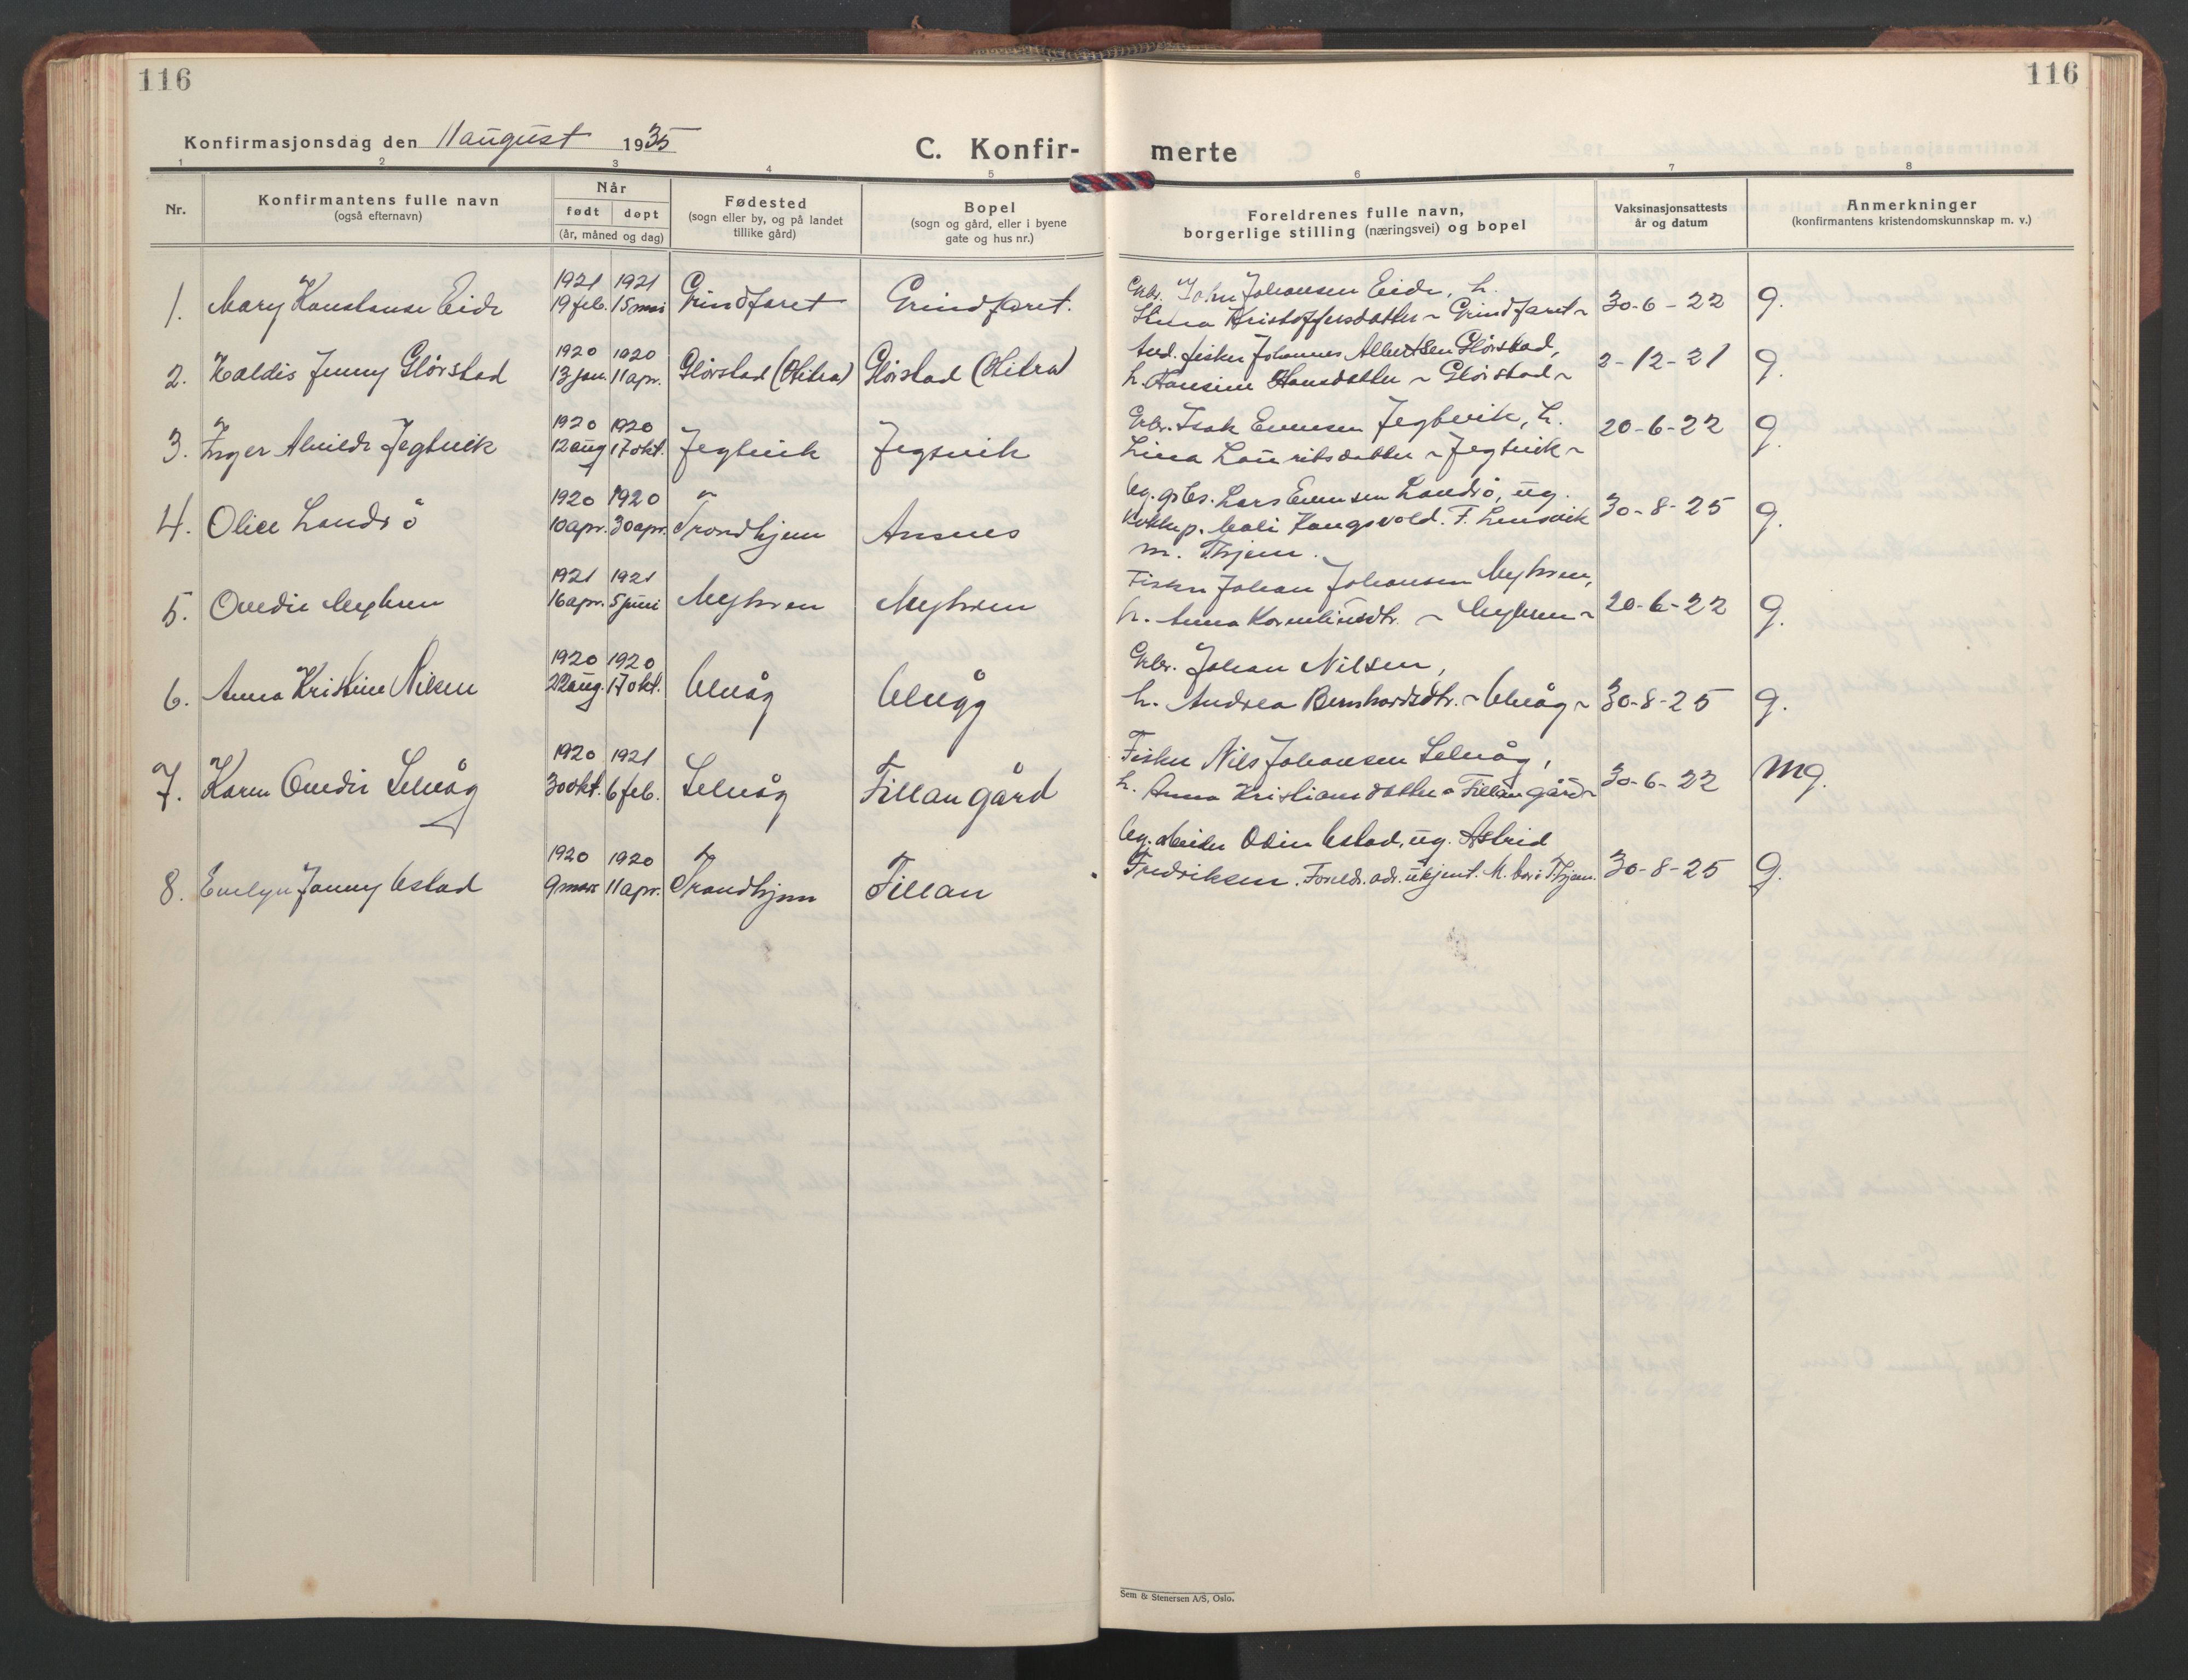 116
116
Konfirmasjonsdag den 11 august 1935
C. Konfir-
merte
1 2 3 4 5 6 7 8
Nr.
Konfirmantens fulle navn
(også efternavn)
Når
født døpt
(år, måned og dag)
Fødested
(sogn eller by, og på landet
tillike gård)
Bopel
(sogn og gård, eller i byene
gate og hus nr.)
Foreldrenes fulle navn,
borgerlige stilling (næringsvei) og bopel
Vaksinasjonsattests
år og datum
Anmerkninger
(konfirmantens kristendomskunnskap m. v.)
1921 1921
1. Mary Konstanse Eide 19 feb. 15 mai Grindfaret Grindfaret.
Gbr. John Johansen Eide, h.
Kristoffersdatter ~ Grindfaret ~ 30-6-22 g.
1920 1920
2. Haldis Jenny Glørstad 13 jan. 11 apr. Glørstad (Hitra) Glørstad (Hitra)
fisker Johannes Albertsen Glørstad,
h. Hansine Hansdatter ~ Glørstad ~ 2-12-21 g.
1920 1920
3. Inger Alvilde Jegtvik 12 aug 17 okt. Jegtvik Jegtvik
Gbr. Isak Evensen Jegtvik, h.
Lina Lauritsdatter ~ Jegtvik ~ 20-6-22 g.
1920 1920
4. Olice Landrö 10 apr. 30 apr. Trondhjem Ansnes
Ug. gbs. Lars Evensen Landrö, ug.
Mali Kongsvold. F. Lensvik
m. Thjem.
30-8-25 g.
1921 1921
5. Ovedie Myhren 16 apr. 5 juni Myhren Myhren
Fisker Johan Johansen Myhren,
h. Anna Korneliusdtr. ~ Myhren ~ 20-6-22 g.
1920 1920
6. Anna Kristine Nilsen 22 aug. 17 okt. Ulvåg Ulvåg
Gbr. Johan Nilsen,
h. Andrea Bernhardsdtr. ~ Ulvåg ~ 30-8-25 g.
1920 1921
7. Karen Ovedie Selvåg 30 okt. 6 feb. Selvåg Fillan gård
Fisker Nils Johansen Selvåg,
h. Anna Kristiansdatter ~ Fillan gård ~ 30-6-22 mg.
1920 1920
8. Evelyn Jenny Ustad 9 mars 11 apr. Trondhjem Fillan
Ug. arbeider Odin Ustad, ug. Astrid
Fredriksen. Foreldr. adr. ukjent. M. bor i Thjem. 30-8-25 g.
Sem & Stenersen A/S, Oslo.